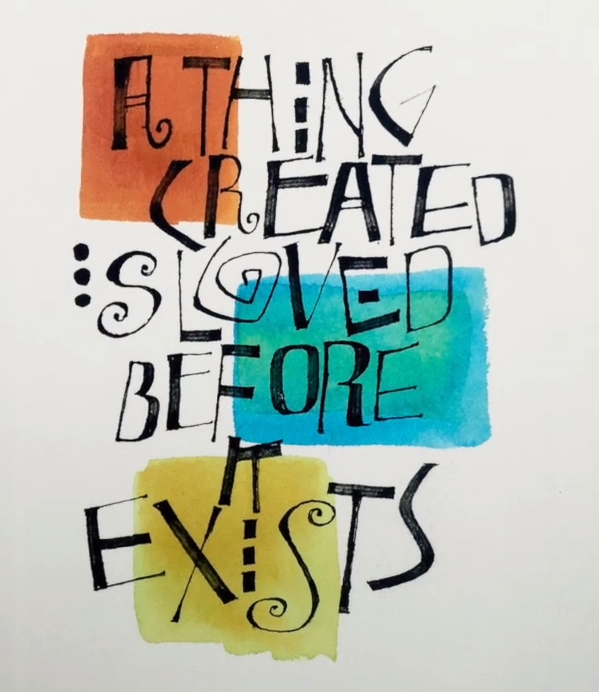 A THING
CREATED
IS LOVED
BEFORE
IT
EXISTS